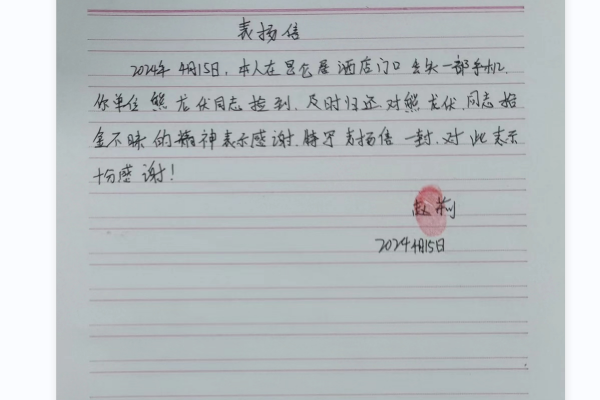 表扬信
2024年4月15日,本人在昆仑居酒店门口丢失一部手机.
你单位熊龙伏同志捡到.及时归还对熊龙伏.同志拾
金不昧的精神表示感谢.特写表扬信一封.对此表示
十分感谢!
赵莉
2024年4月15日